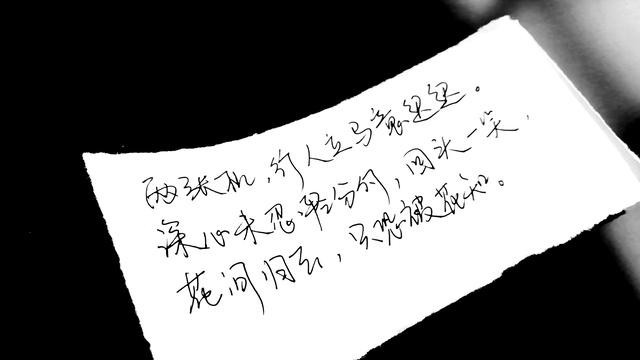 两张机,行人立马意迟迟。
深心未忍轻分付,回头一笑,
花间归去,只恐被花知。